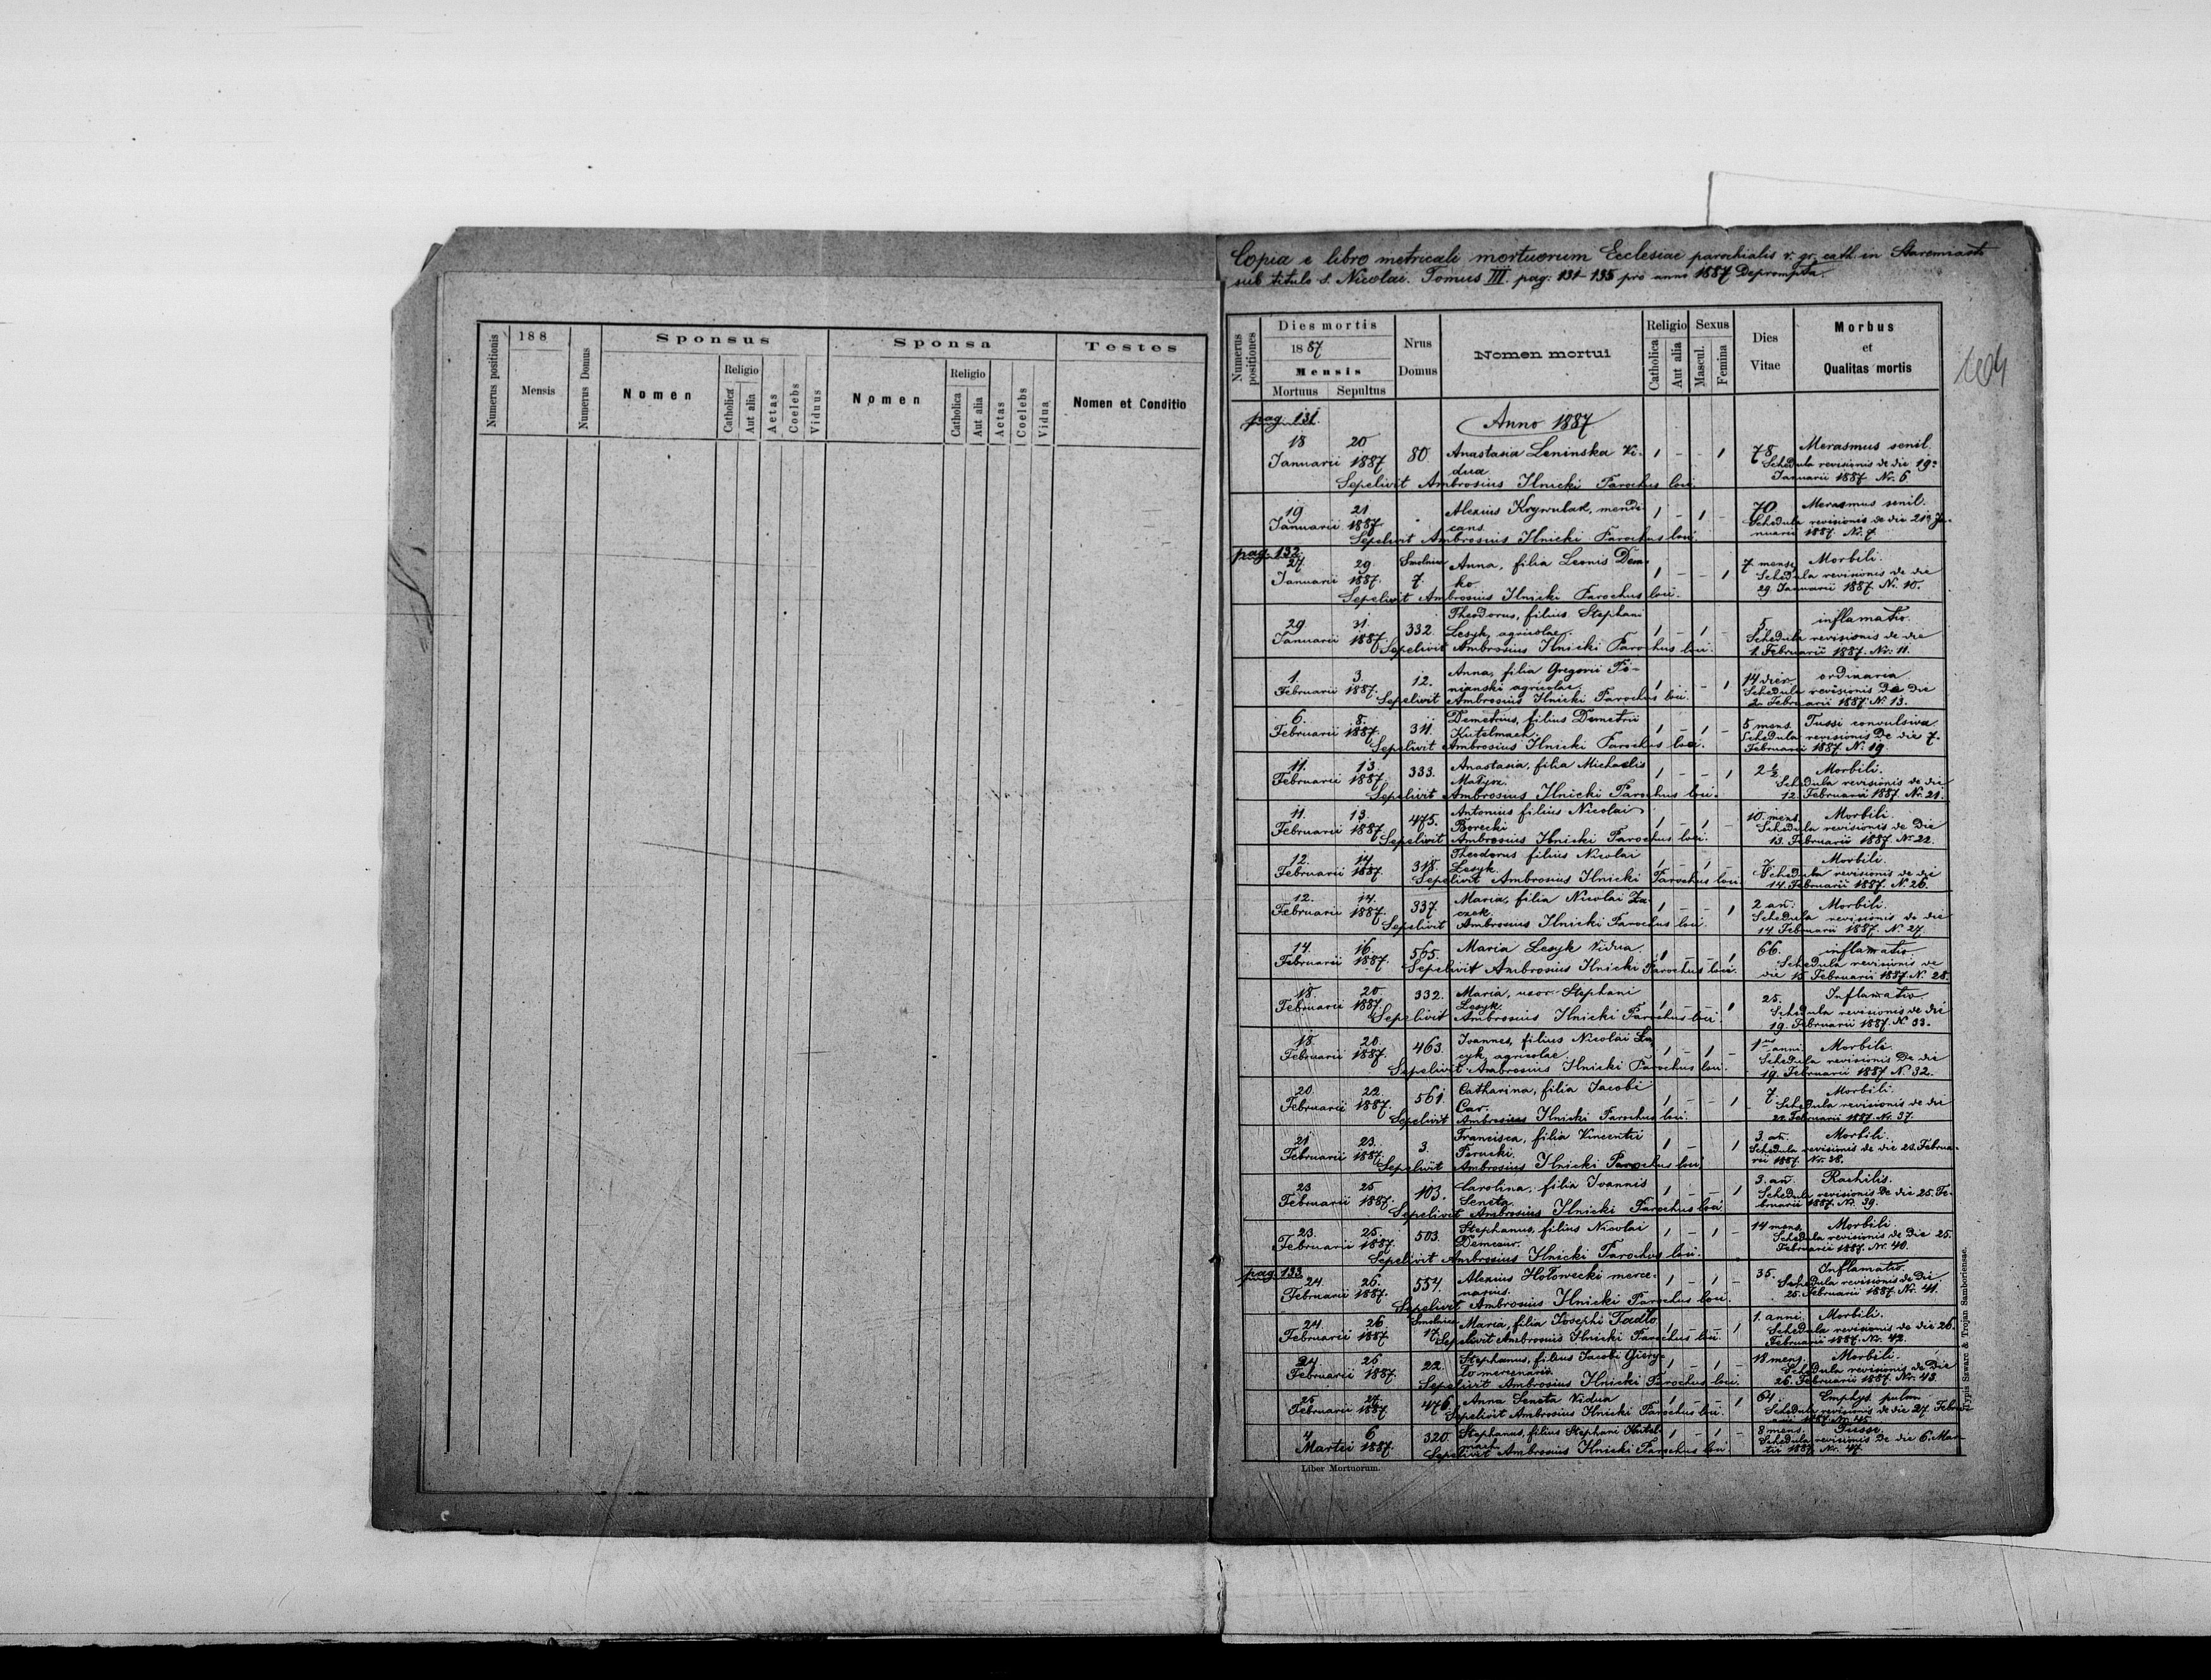 188
Numerus positionis
Mensis
Numerus Domus
Sponsus
Nomen
Religio
Catholica
Aut alia
Aetas
Coelebs
Viduus
Sponsa
Nomen
Religio
Catholica
Aut alia
Aetas
Coelebs
Vidua
Testes
Nomen et Conditio
Copia e libro metricali mortuorum Ecclesiae parochialis r. gr. cath. in Staremiasto
sub titulo S. Nicolai. Tomus III. pag: 131-135 pro anno 1887 Deprompta.
Numerus positiones
Dies mortis
1887
Mensis
Mortuus Sepultus
Nrus Domus
Nomen mortui
Religio
Catholica
Aut alia
Sexus
Mascul.
Femina
Dies Vitae
Morbus
et
Qualitas mortis
104
pag. 131. Anno 1887
18 20 80 Anastasia Leninska Vi- 1 - - 1 78 Merasmus senil.
Januarii 1887 dua Schedula revisionis de die 19.
Sepelivit Ambrosius Ilnicki Parochus loci. Januarii 1887 Nr. 6.
19 21 Alexius Krywulak, mendi 1 - 1 - 70 Merasmus senil.
Januarii 1887 cans. Schedula revisionis de die 21 Ja-
Sepelivit Ambrosius Ilnicki Parochus loci. nuarii 1887. Nr. 7.
pag. 132.
27 29 7. Anna, filia Leonis Dem- 1 - - 1 7 mens. Morbili.
Januarii 1887. ko. Schedula revisionis de die
Sepelivit Ambrosius Ilnicki Parochus loci. 29. Januarii 1887. N. 10.
29. 31. 332. Theodorus, filius Stephani 1 - 1 - 5. inflamatio.
Januarii 1887. Lesyk, agricolae. Schedula revisionis de die
Sepelivit Ambrosius Ilnicki Parochus loci. 1. Februarii 1887. Nr. 11.
1. 3. 12. Anna, filia Gregorii 1 - - 1 14 dier. ordinaria
Februarii 1887. nianski agricolae. Schedula revisionis De die
Sepelivit Ambrosius Ilnicki Parochus loci. 2. Februarii 1887. N. 13.
6. 8. 311. Demetrius, filius Demetrii 1 - 1 - 5 mens. Tussi convulsiva.
Februarii 1887. Kutelmach. Schedula revisionis De die 7.
Sepelivit Ambrosius Ilnicki Parochus loci. Februarii 1887. N. 19.
11. 13. 333. Anastasia, filia Michaelis 1 - - 1 2½ Morbili.
Februarii 1887. Schedula revisionis de die
Sepelivit Ambrosius Ilnicki Parochus loci. 12. Februarii 1887. Nr. 21.
11. 13. 475. Antonius filius Nicolai 1 - 1 - 10. mens. Morbili.
Februarii 1887. Borecki Schedula revisionis de Die
Sepelivit Ambrosius Ilnicki Parochus loci. 13. Februarii 1887. Nr. 22.
12. 14. 318. Theodorus filius Nicolai 1 - 1 - 7. Morbili.
Februarii 1887. Lesyk. Schedula revisionis de die
Sepelivit Ambrosius Ilnicki Parochus loci 14. Februarii 1887. N. 26.
12. 14. 337. Maria, filia Nicolai Za 1 - - 1 2 an: Morbili.
Februarii 1887. czek. Schedula revisionis de die
Sepelivit Ambrosius Ilnicki Parochus loci. 14. Februarii 1887. N. 27.
14. 16. 565. Maria Lesyk Vidua. 1 - - 1 66. inflamatio
Februarii 1887. Schedula revisionis de
Sepelivit Ambrosius Ilnicki Parochus loci. die 15. Februarii 1887. N. 28.
18. 20. 332. Maria, uxor Stephani 1 - - 1 25. Inflamatio.
Februarii 1887. Lesyk. Schedula revisionis de die
Sepelivit Ambrosius Ilnicki Parochus loci. 19. Februarii 1887. N. 33.
18. 20. 463. Joannes, filius Nicolai 1 - 1 - 1 anni Morbili.
Februarii 1887. cyk, agricolae. Schedula revisionis De die
Sepelivit Ambrosius Ilnicki Parochus loci. 19. Februarii 1887. N. 32.
20. 22. 561. Catharina, filia Jacobi 1 - - 1 7. Morbili.
Februarii 1887. Car. Schedula revisionis de die
Sepelivit Ambrosius Ilnicki Parochus loci. 22. Februarii 1887. Nr. 37.
21 23. 3. Francisca, filia Vincentii 1 - 1 3. an. Morbili.
Februarii 1887. Schedula revisionis de die 23. Februa-
Sepelivit Ambrosius Ilnicki Parochus loci rii 1887. Nr. 38.
23 25 103. Carolina, filia Joannis 1 - - 1 3. an. Rachilis.
Februarii 1887. Seneta. Schedula revisionis De die 25. Fe-
Sepelivit Ambrosius Ilnicki Parochus loci bruarii 1887. Nr. 39.
23. 25. 503. Stephanus, filius Nicolai 1 - 1 - 14 mens. Morbili.
Februarii 1887. Schedula revisionis de Die 25.
Sepelivit Ambrosius Ilnicki Parochus loci. Februarii 1887. Nr. 40.
pag. 133.
24. 26. 554. Alexius Hołowecki merce- 1 - 1 - 35. Inflamatio.
Februarii 1887. narius. Schedula revisionis de Die
Sepelivit Ambrosius Ilnicki Parochus loci. 25. Februarii 1887. Nr. 41.
24. 26 17. Maria, filia Josephi 1 - - 1 1. anni. Morbili.
Februarii 1887 Schedula revisionis de die 26.
Sepelivit Ambrosius Ilnicki Parochus loci. Februarii 1887. Nr. 42.
24 26 22. Stephanus, filius Jacobi 1 - 1 - 18 mens. Morbili.
Februarii 1887. mercenarii. Schedula revisionis de Die
Sepelivit Ambrosius Ilnicki Parochus loci. 26. Februarii 1887. Nr. 43.
25 27 476. Anna Seneta Vidua 1 - - 1 64. Emphys. pulm.
Februarii 1887 Schedula revisionis de die 27. Februa
Sepelivit Ambrosius Ilnicki Parochus loci. rii 1887. Nr. 45.
4 6 320. Stephanus, filius Stephani Kutel- 1 - 1 - 8 mens. Tusse
Martii 1887. mach. Schedula revisionis De die 6. Mar-
Sepelivit Ambrosius Ilnicki Parochus loci tii 1887. Nr. 47
Liber Mortuorum.
Typis Szwarc & Trojan Samboriensae.